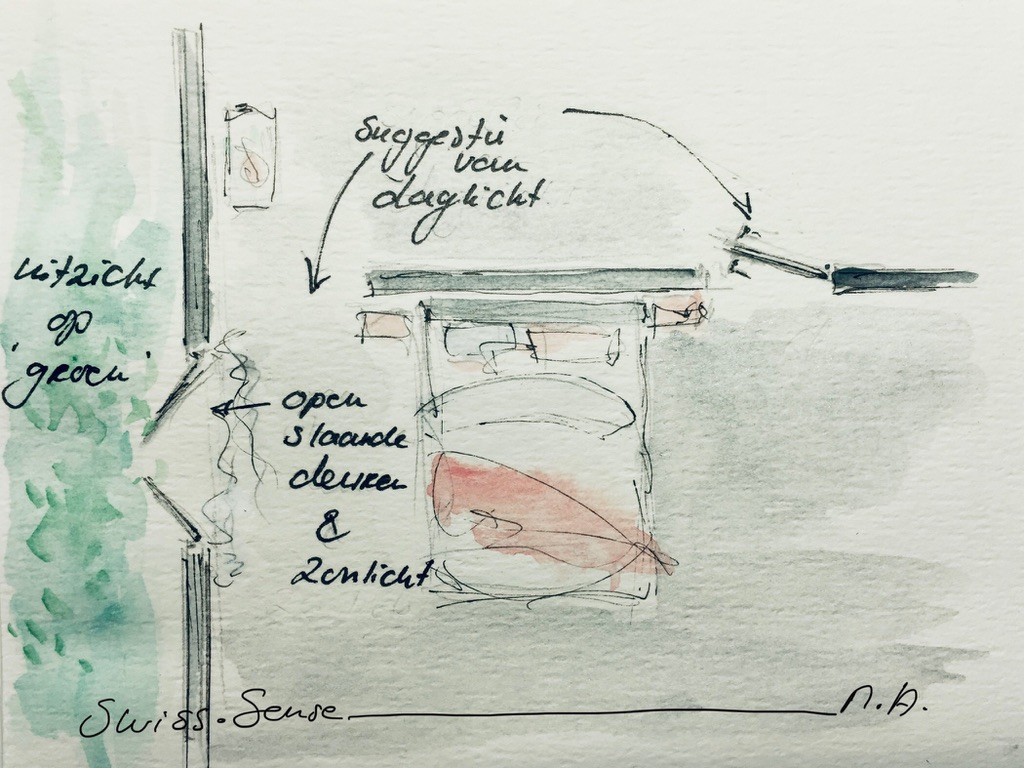 Suggestie
van
daglicht
uitzicht
op
'groen'
open
slaande
deuren
&
zonlicht
Swiss-Sense
M.A.